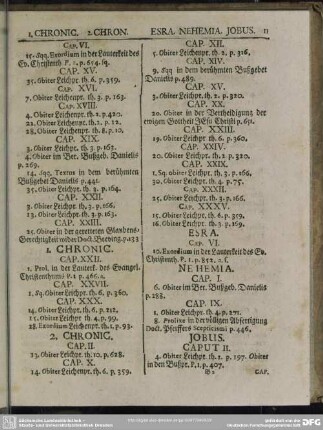 1. CHRONIC. 2. CHRON.
CAP. VI.
25. sqq. Exordium in der Lauterkeit des
Ev. Christenth. P. 1. p. 654. sq.
CAP. XV.
35. Obiter Leichenpr. th. 6. p. 359.
CAP. XVI.
7. Obiter Leichenpr. th. 3. p. 163.
CAP. XVIII.
4. Obiter Leichenpr. th. 2. p. 420.
21. Obiter Leichenpr. th. 1. p. 22.
28. Obiter Leichenpr. th. 8. p. 10.
CAP. XIX.
3. Obiter Leichpr. th. 3. p. 163.
4. Obiter im Ber. Bußgeb. Danielis
p. 269.
14. sqq. Textus in dem berühmten
Bußgebet Danielis p. 441.
35. Obiter Leichpr. th. 3. p. 164.
CAP. XXII.
2. Obiter Leichpr. th. 3. p. 166.
23. Obiter Leichpr. th. 3. p. 163.
CAP. XXIII.
25. Obiter in der geretteten Glaubens-
Gerechtigkeit wider Doct. p. 133
1. CHRONIC.
CAP. XXII.
1. Prol. in der Lauterk. des Evangel.
Christenthums P. 1 p. 466.
CAP. XXVII.
1. Sq. Obiter Leichpr. th. 6. p. 360.
CAP. XXX.
14. Obiter Leichenpr. th. 6. p. 212.
15. Obiter Leichpr. th. 4. p. 99.
28. Exordium Leichenpr. th. 1. p. 93.
2. CHRONIC.
CAP. II.
13. Obiter Leichpr. th. 10. p. 628.
CAP. X.
14. Obiter Leichenpr. th. 6. p. 359.
ESRA. NEHEMIA. JOBUS. 11
CAP. XII.
5. Obiter Leichenpr. th. 2. p. 316.
CAP. XIV.
9. sqq. in dem berühmten Bußgebet
Danielis p. 489.
CAP. XV.
3. Obiter Leichpr. th. 2. p. 320.
CAP. XX.
20. Obiter in der Vertheidigung der
ewigen Gottheit JEsu Christi p. 651.
CAP. XXIII.
19. Obiter Leichenpr. th. 6. p. 360.
CAP. XXIV.
20. Obiter Leichpr. th. 2. p. 320.
CAP. XXIX.
1. Sq. Obiter Leichpr. th. 3. p. 166.
30. Obiter Leichpr. th. 4. p. 75.
CAP. XXXII.
25. Obiter Leichpr. th. 3. p. 166.
CAP. XXXV.
15. Obiter Leichpr. th. 6. p. 359.
16. Obiter Leichpr. th. 3. p. 169.
ESRA.
CAP. VI.
10. Exordium in der Lauterkeit des Ev.
Christenth. P. 1. p. 852. s. f.
NEHEMIA.
CAP. I.
6. Obiter im Ber. Bußgeb. Danielis
p. 288.
CAP. IX.
1. Obiter Leichpr. th. 4. p. 271.
8. Prolixe in der völligen Abfertigung
Doct. Pfeiffers Scepticismi p. 446.
JOBUS.
CAPUT II.
4. Obiter Leichpr. th. 1. p. 197. Obiter
in den Bußpr. P. 1. p. 407.
B 2 CAP.